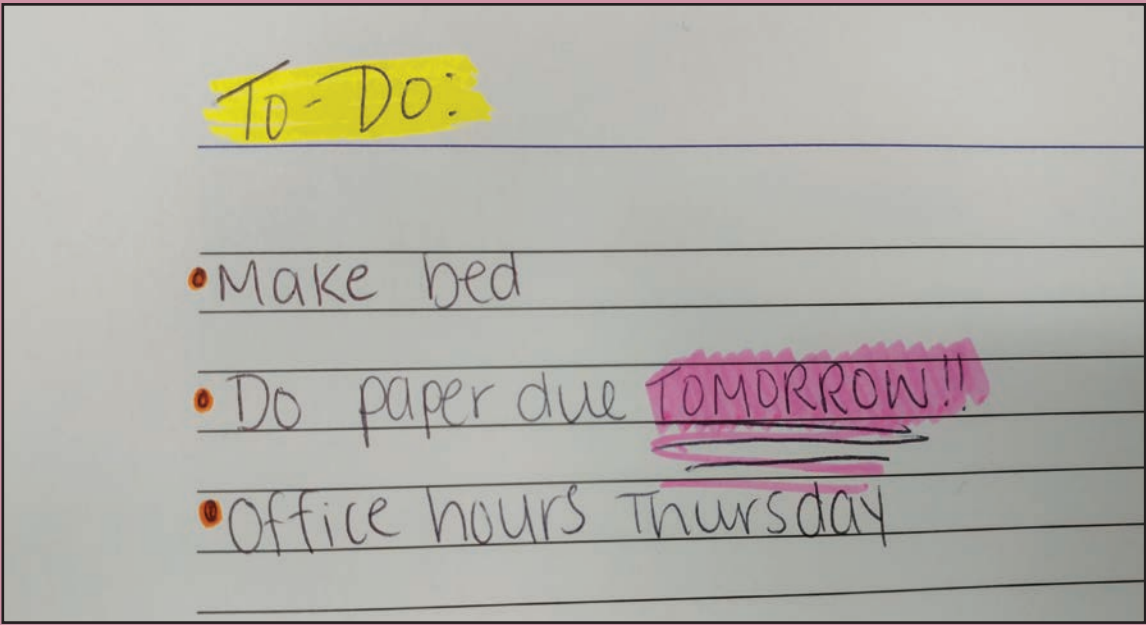 To-Do:
•Make bed
•Do paper due TOMORROW!!
•Office hours Thursday